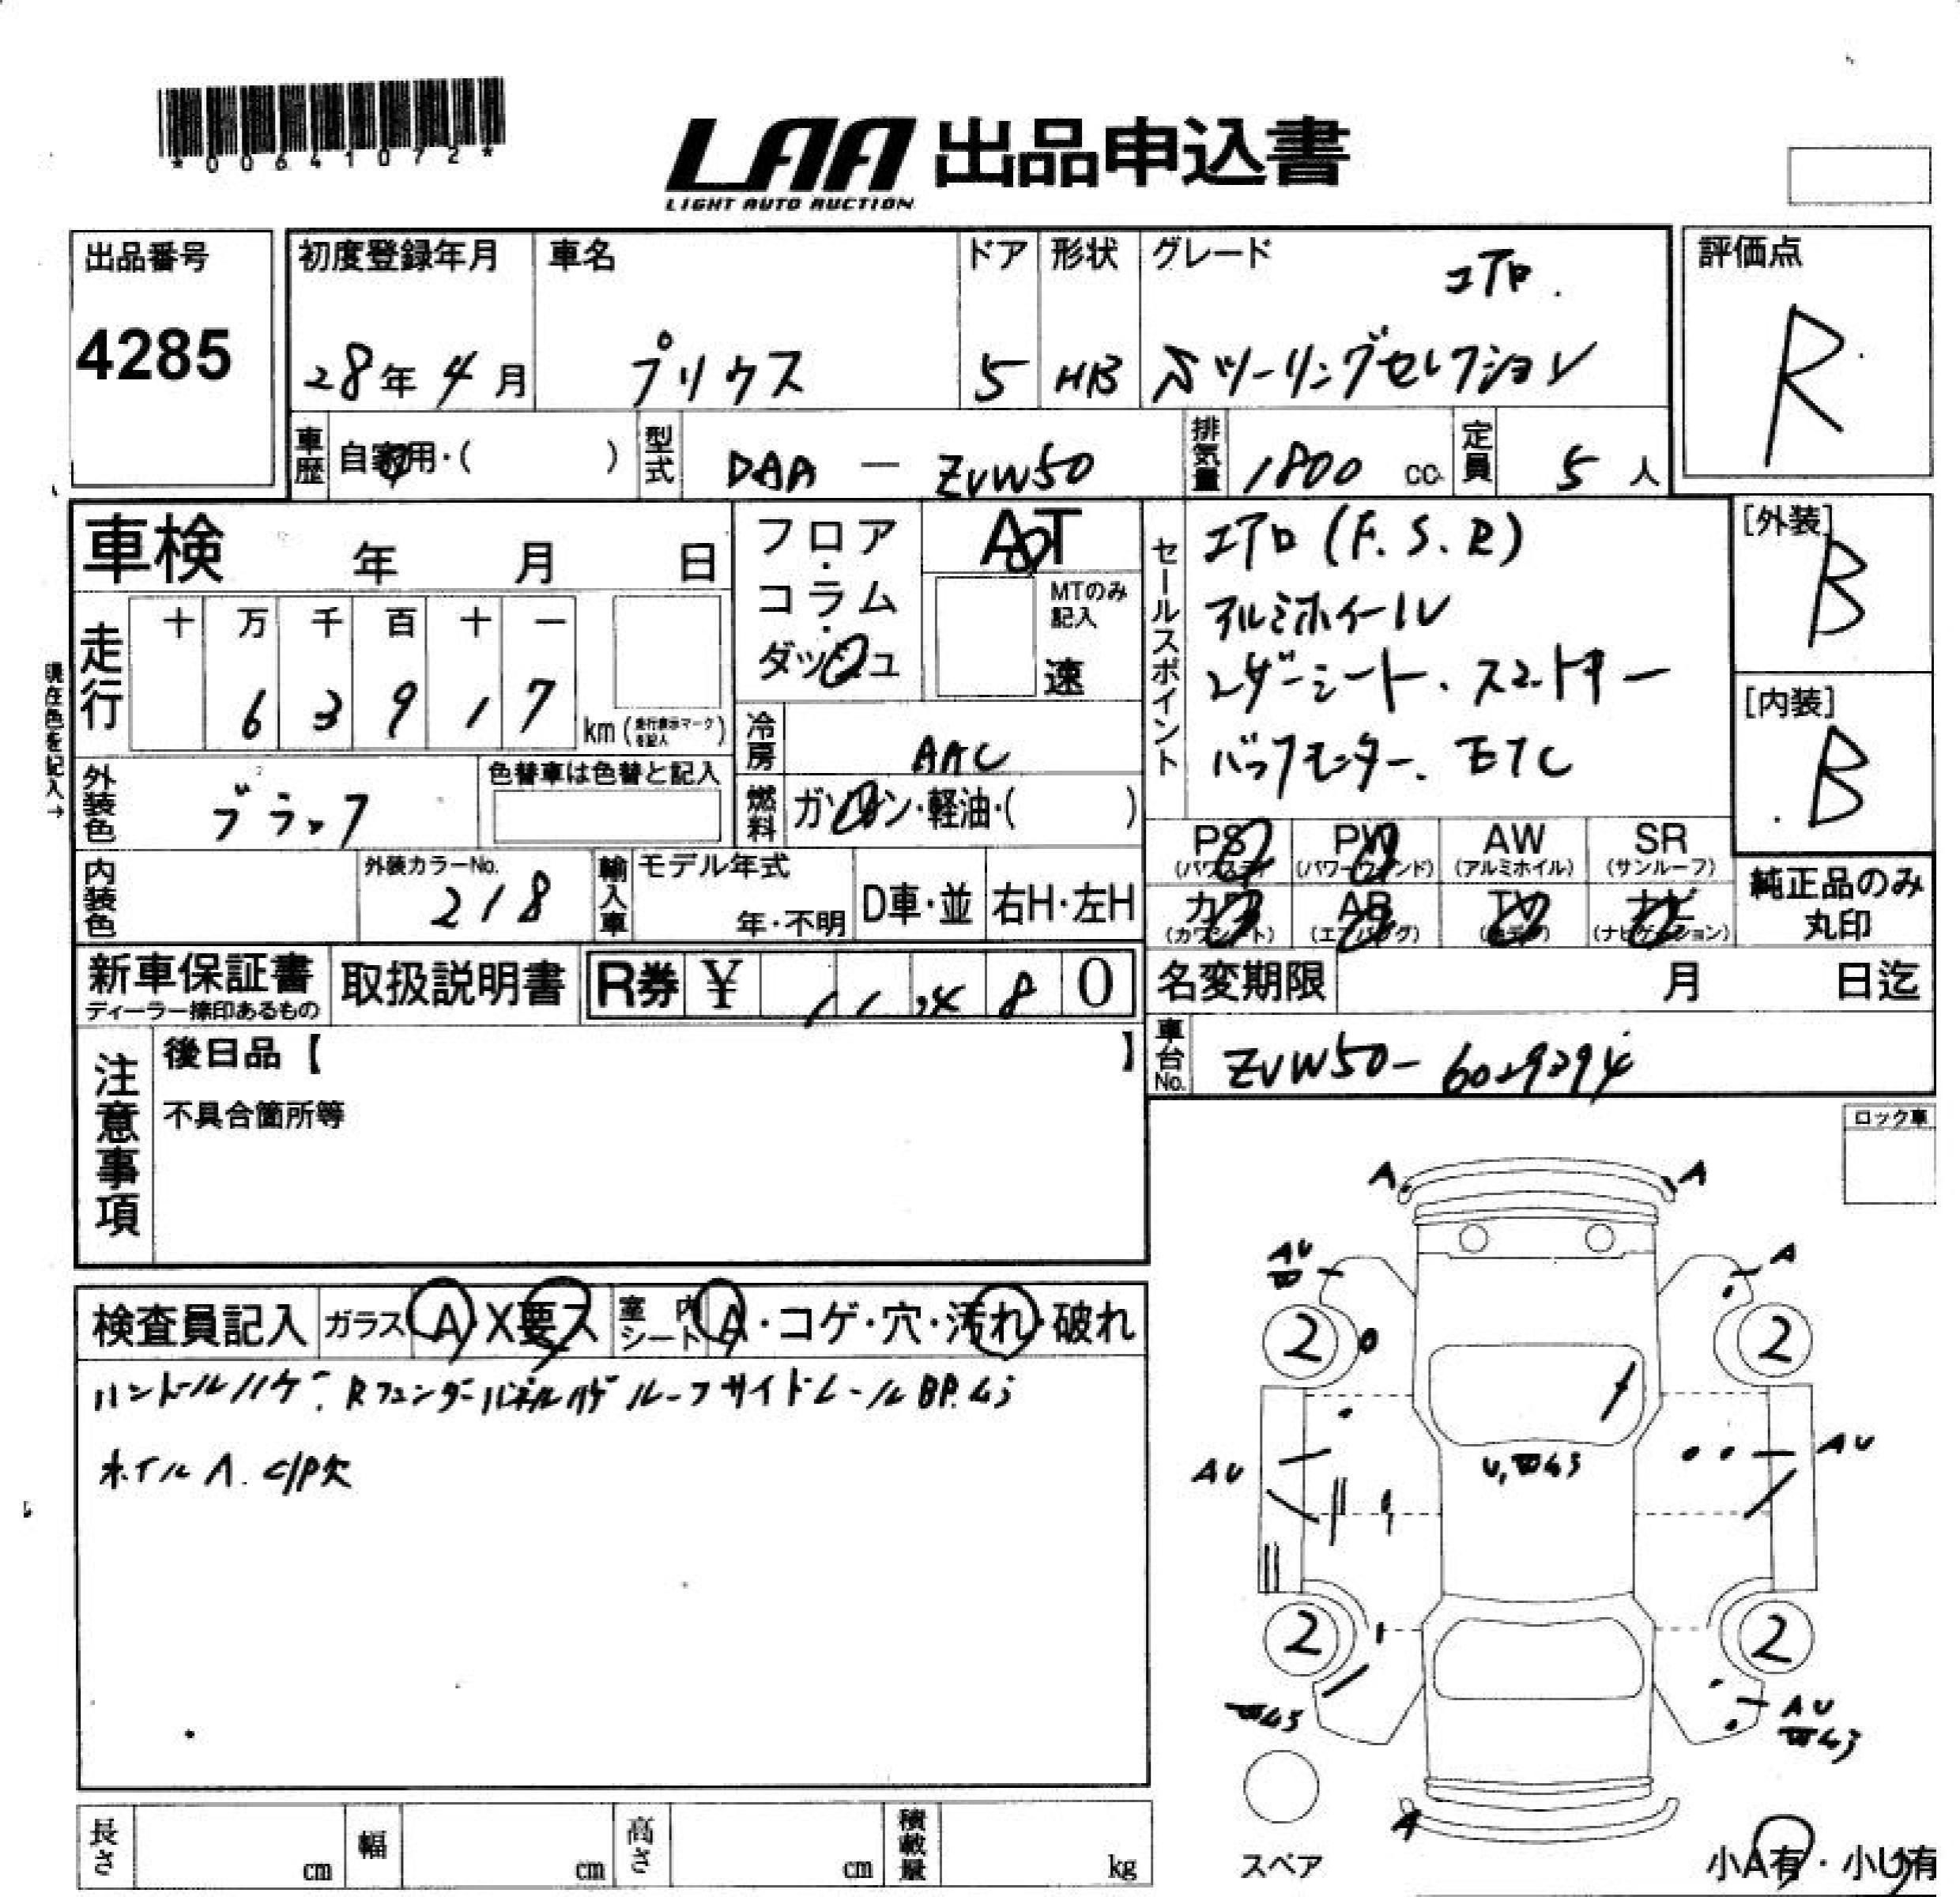 *00641072*
LAA 出品申込書
LIGHT AUTO AUCTION
出品番号
4285
初度登録年月
28年4月
車名
プリウス
ドア
5
形状
HB
グレード
エアロ.
Sツーリングセレクション
評価点
R
車歴
自家用・( )
型式
DAA — ZVW50
排気量
1800 cc
定員
5人
車検 年 月 日
フロア・コラム・ダッシュ
AT
MTのみ記入
速
セールスポイント
エアロ(F.S.R)
アルミホイール
レザーシート.スマートキー
バックモニター.ETC
[外装]
B
[内装]
B
走行
十 万 千 百 十 一
6 3 9 1 7
km(走行表示マークを記入)
現在色を記入→
冷房
AAC
外装色
ブラック
色替車は色替と記入
燃料
ガソリン・軽油・( )
PS
(パワステ)
PW
(パワーウィンド)
AW
(アルミホイル)
SR
(サンルーフ)
カワ
(カワシート)
AB
(エアバッグ)
TV
ナビ
(ナビゲーション)
純正品のみ
丸印
内装色
外装カラーNo.
218
輸入車
モデル年式
年・不明
D車・並
右H・左H
新車保証書
ディーラー捺印あるもの
取扱説明書
R券 ¥ 11,480
名変期限 月 日迄
車台No.
ZVW50-6029294
注意事項
後日品【 】
不具合箇所等
ロック車
検査員記入
ガラス A X要ス
室内シート A・コゲ・穴・汚れ・破れ
ハンドルハゲ. Rフェンダーパネルハゲ ルーフサイドレールBP.キズ
ホイルA. C/P欠
A
A
AU
A
2
2
AU
AU
2
2
AU
A
長さ cm
幅 cm
高さ cm
積載量 kg
スペア
小A有・小U有